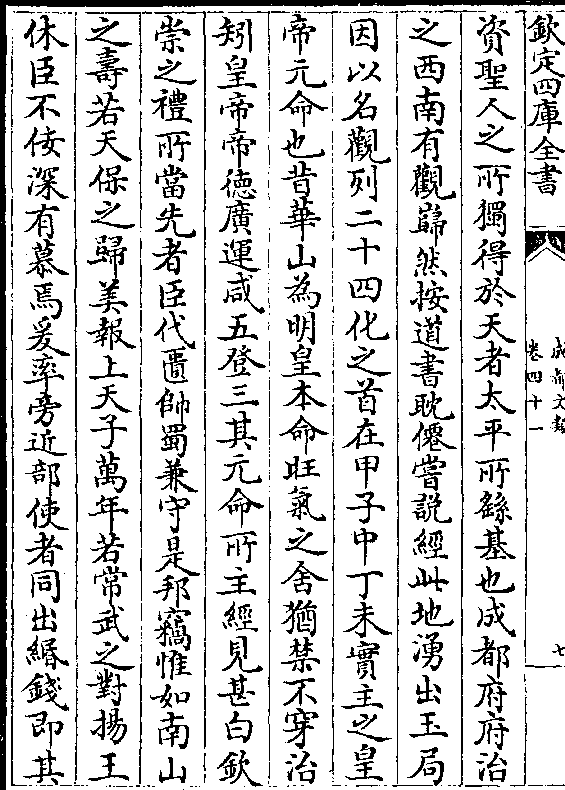 欽定四庫全書
成都文類
卷四十一
七
資聖人之所獨得於天者太平所繇基也成都府府治
之西南有觀巋然按道書耽僊嘗說經此地湧出玉局
因以名觀列二十四化之首在甲子中丁未實主之皇
帝元命也昔華山為明皇本命旺氣之舍猶禁不穿治
矧皇帝帝德廣運咸五登三其元命所主經見甚白欽
崇之禮所當先者臣代匱帥蜀兼守是邦竊惟如南山
之壽若天保之歸美報上天子萬年若常武之對揚王
休臣不佞深有慕焉爰率旁近部使者同出緡錢即其